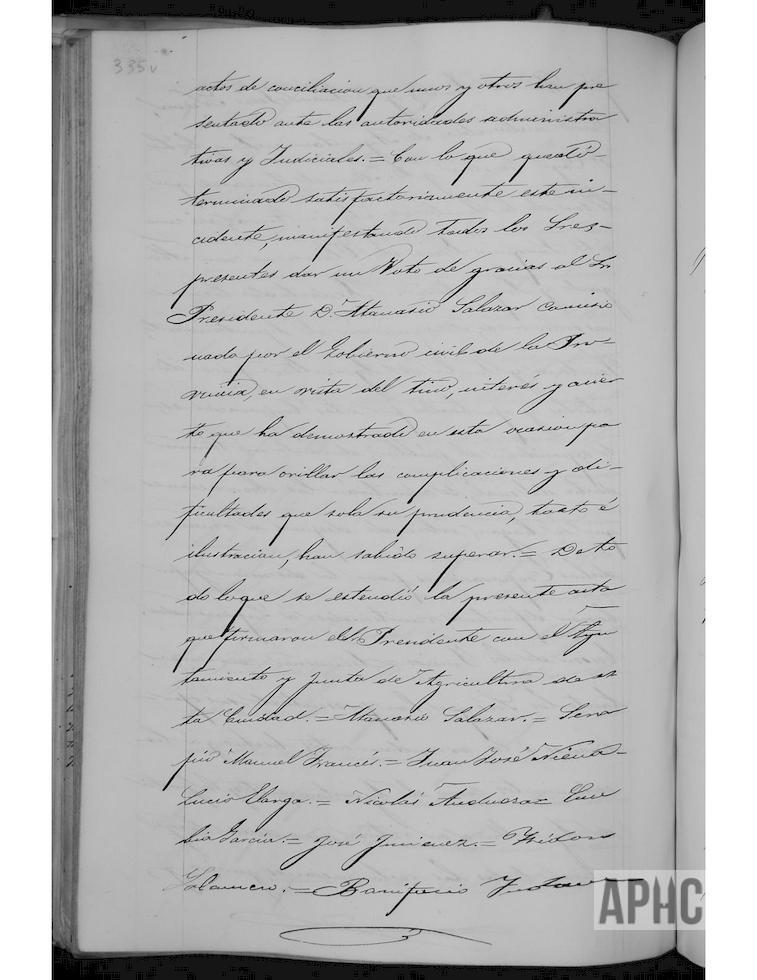 335v
actos de conciliacion que unos y otros han pre
sentado ante las autoridades administra
tivas y Judiciales.= Con lo que quedó
terminado satisfactoriamente este in-
cidente, manifestando todos los Sres-
presentes dar un Voto de gracias al Sr
Presidente D. Atanasio Salazar comisio
nado por el Gobierno civil de la Pro-
vincia, en vista del tino, interés y acier
to que ha demostrado en esta ocasion pa
ra para orillar las complicaciones y di-
ficultades que sola su prudencia, tacto é
ilustracion, han sabido superar.= De to
do lo que se estendió la presente acta
que firmaron el Sr Presidente con el Ayun
tamiento y Junta de Agricultura de es
ta Ciudad.= Atanasio Salazar.= Sera
pio Manuel Francés.= Juan José
Lucio Elarga.= Nicolás Andueza= Euse
bio Garcia.= José Jimenez.= Isidoro
= Bonifacio
APHC